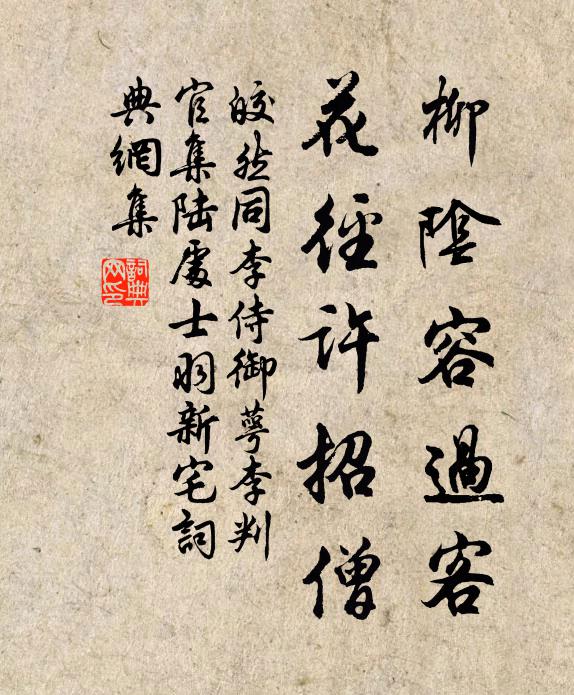 柳陰容過客
花徑許招僧
皎然同李侍御萼李判
官集陸處士羽新宅詞
典網集
詞典網印